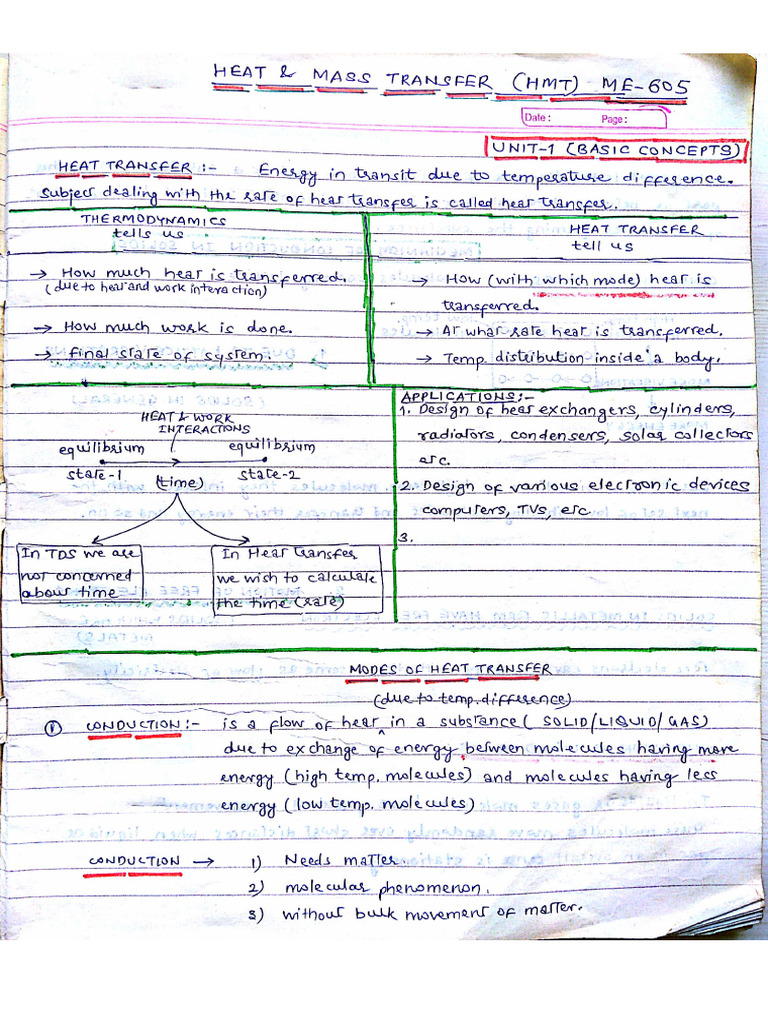 HEAT & MASS TRANSFER (HMT) ME-605
Date : Page :
UNIT-1 (BASIC CONCEPTS)
HEAT TRANSFER :- Energy in transit due to temperature difference.
Subject dealing with the rate of heat transfer is called heat transfer.
THERMODYNAMICS
tells us
→ How much heat is transferred.
(due to heat and work interaction)
→ How much work is done.
→ final state of system.
HEAT TRANSFER
tell us
→ How (with which mode) heat is
transferred.
→ At what rate heat is transferred.
→ Temp. distribution inside a body.
HEAT & WORK
INTERACTIONS
equilibrium equilibrium
state-1 (time) state-2
In TDS we are
not concerned
about time
In Heat transfer
we wish to calculate
the time (rate)
APPLICATIONS:-
1. Design of heat exchangers, cylinders,
radiators, condensers, solar collectors
etc.
2. Design of various electronic devices
computers, TVs, etc
3.
MODES OF HEAT TRANSFER
(due to temp. difference)
① CONDUCTION:- is a flow of heat ^ in a substance ( SOLID/LIQUID/GAS)
due to exchange of energy between molecules having more
energy (high temp. molecules) and molecules having less
energy (low temp. molecules)
CONDUCTION → 1) Needs matter.
2) molecular phenomenon.
3) without bulk movement of matter.